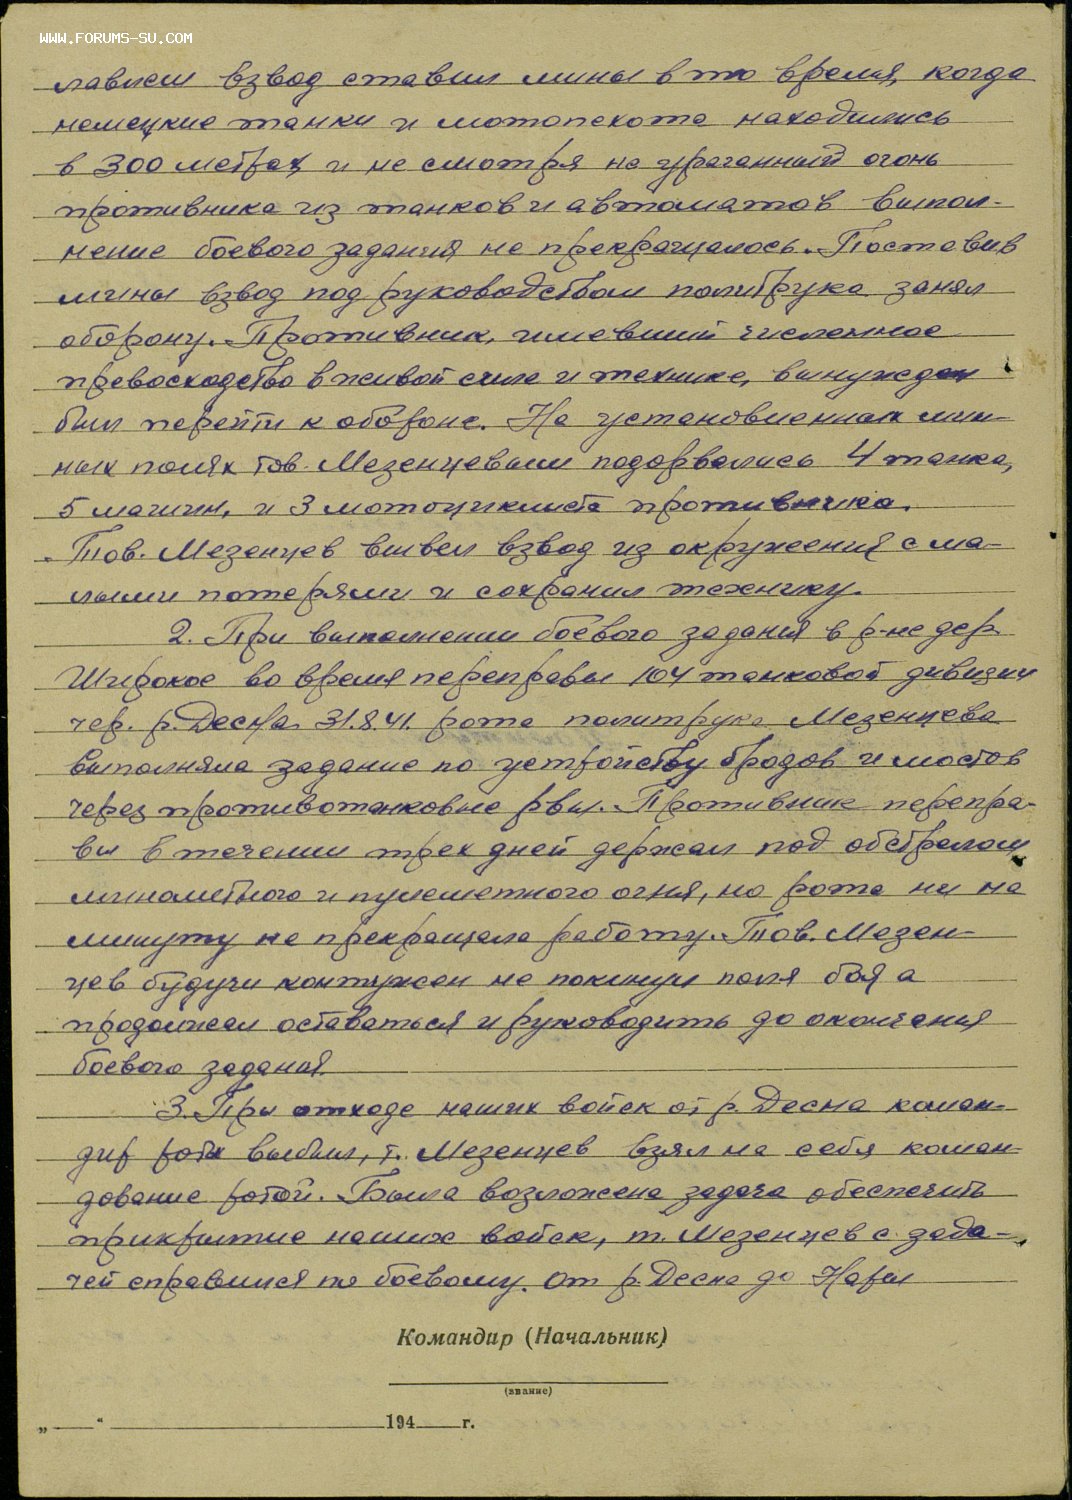 WWW.FORUMS-SU.COM
взвод ставил мины в то время, когда
немецкие танки и мотопехота находились
в 300 метрах и не смотря на ураганный огонь
противника из танков и автоматов выпол-
нение боевого задания не прекращалось. Поставив
мины взвод под руководством политрука занял
оборону. Противник, имевший численное
превосходство в живой силе и технике, вынужден
был перейти к обороне. На установленных мин-
ных полях тов. Мезенцевым подорвались 4 танка,
5 машин, и 3 мотоциклиста противника.
Тов. Мезенцев вывел взвод из окружения с ма-
лыми потерями и сохранил технику.
2. При выполнении боевого задания в р-не дер.
Широкое во время переправы 104 танковой дивизии
чер. р. Десна 31.8.41. рота политрука Мезенцева
выполняла задание по устройству бродов и мостов
через противотанковые рвы. Противник перепра-
вы в течении трех дней держал под обстрелом
минометного и пулеметного огня, но рота ни на
минуту не прекращала работу. Тов. Мезен-
цев будучи контужен не покинул поля боя а
продолжал оставаться и руководить до окончания
боевого задания.
3. При отходе наших войск от р. Десна коман-
дир роты выбыл, т. Мезенцев взял на себя коман-
дование ротой. Была возложена задача обеспечить
прикрытие наших войск, т. Мезенцев с зада-
чей справился по боевому. От р. Десна до Нары
Командир (Начальник)
(звание)
„ “ 194 г.